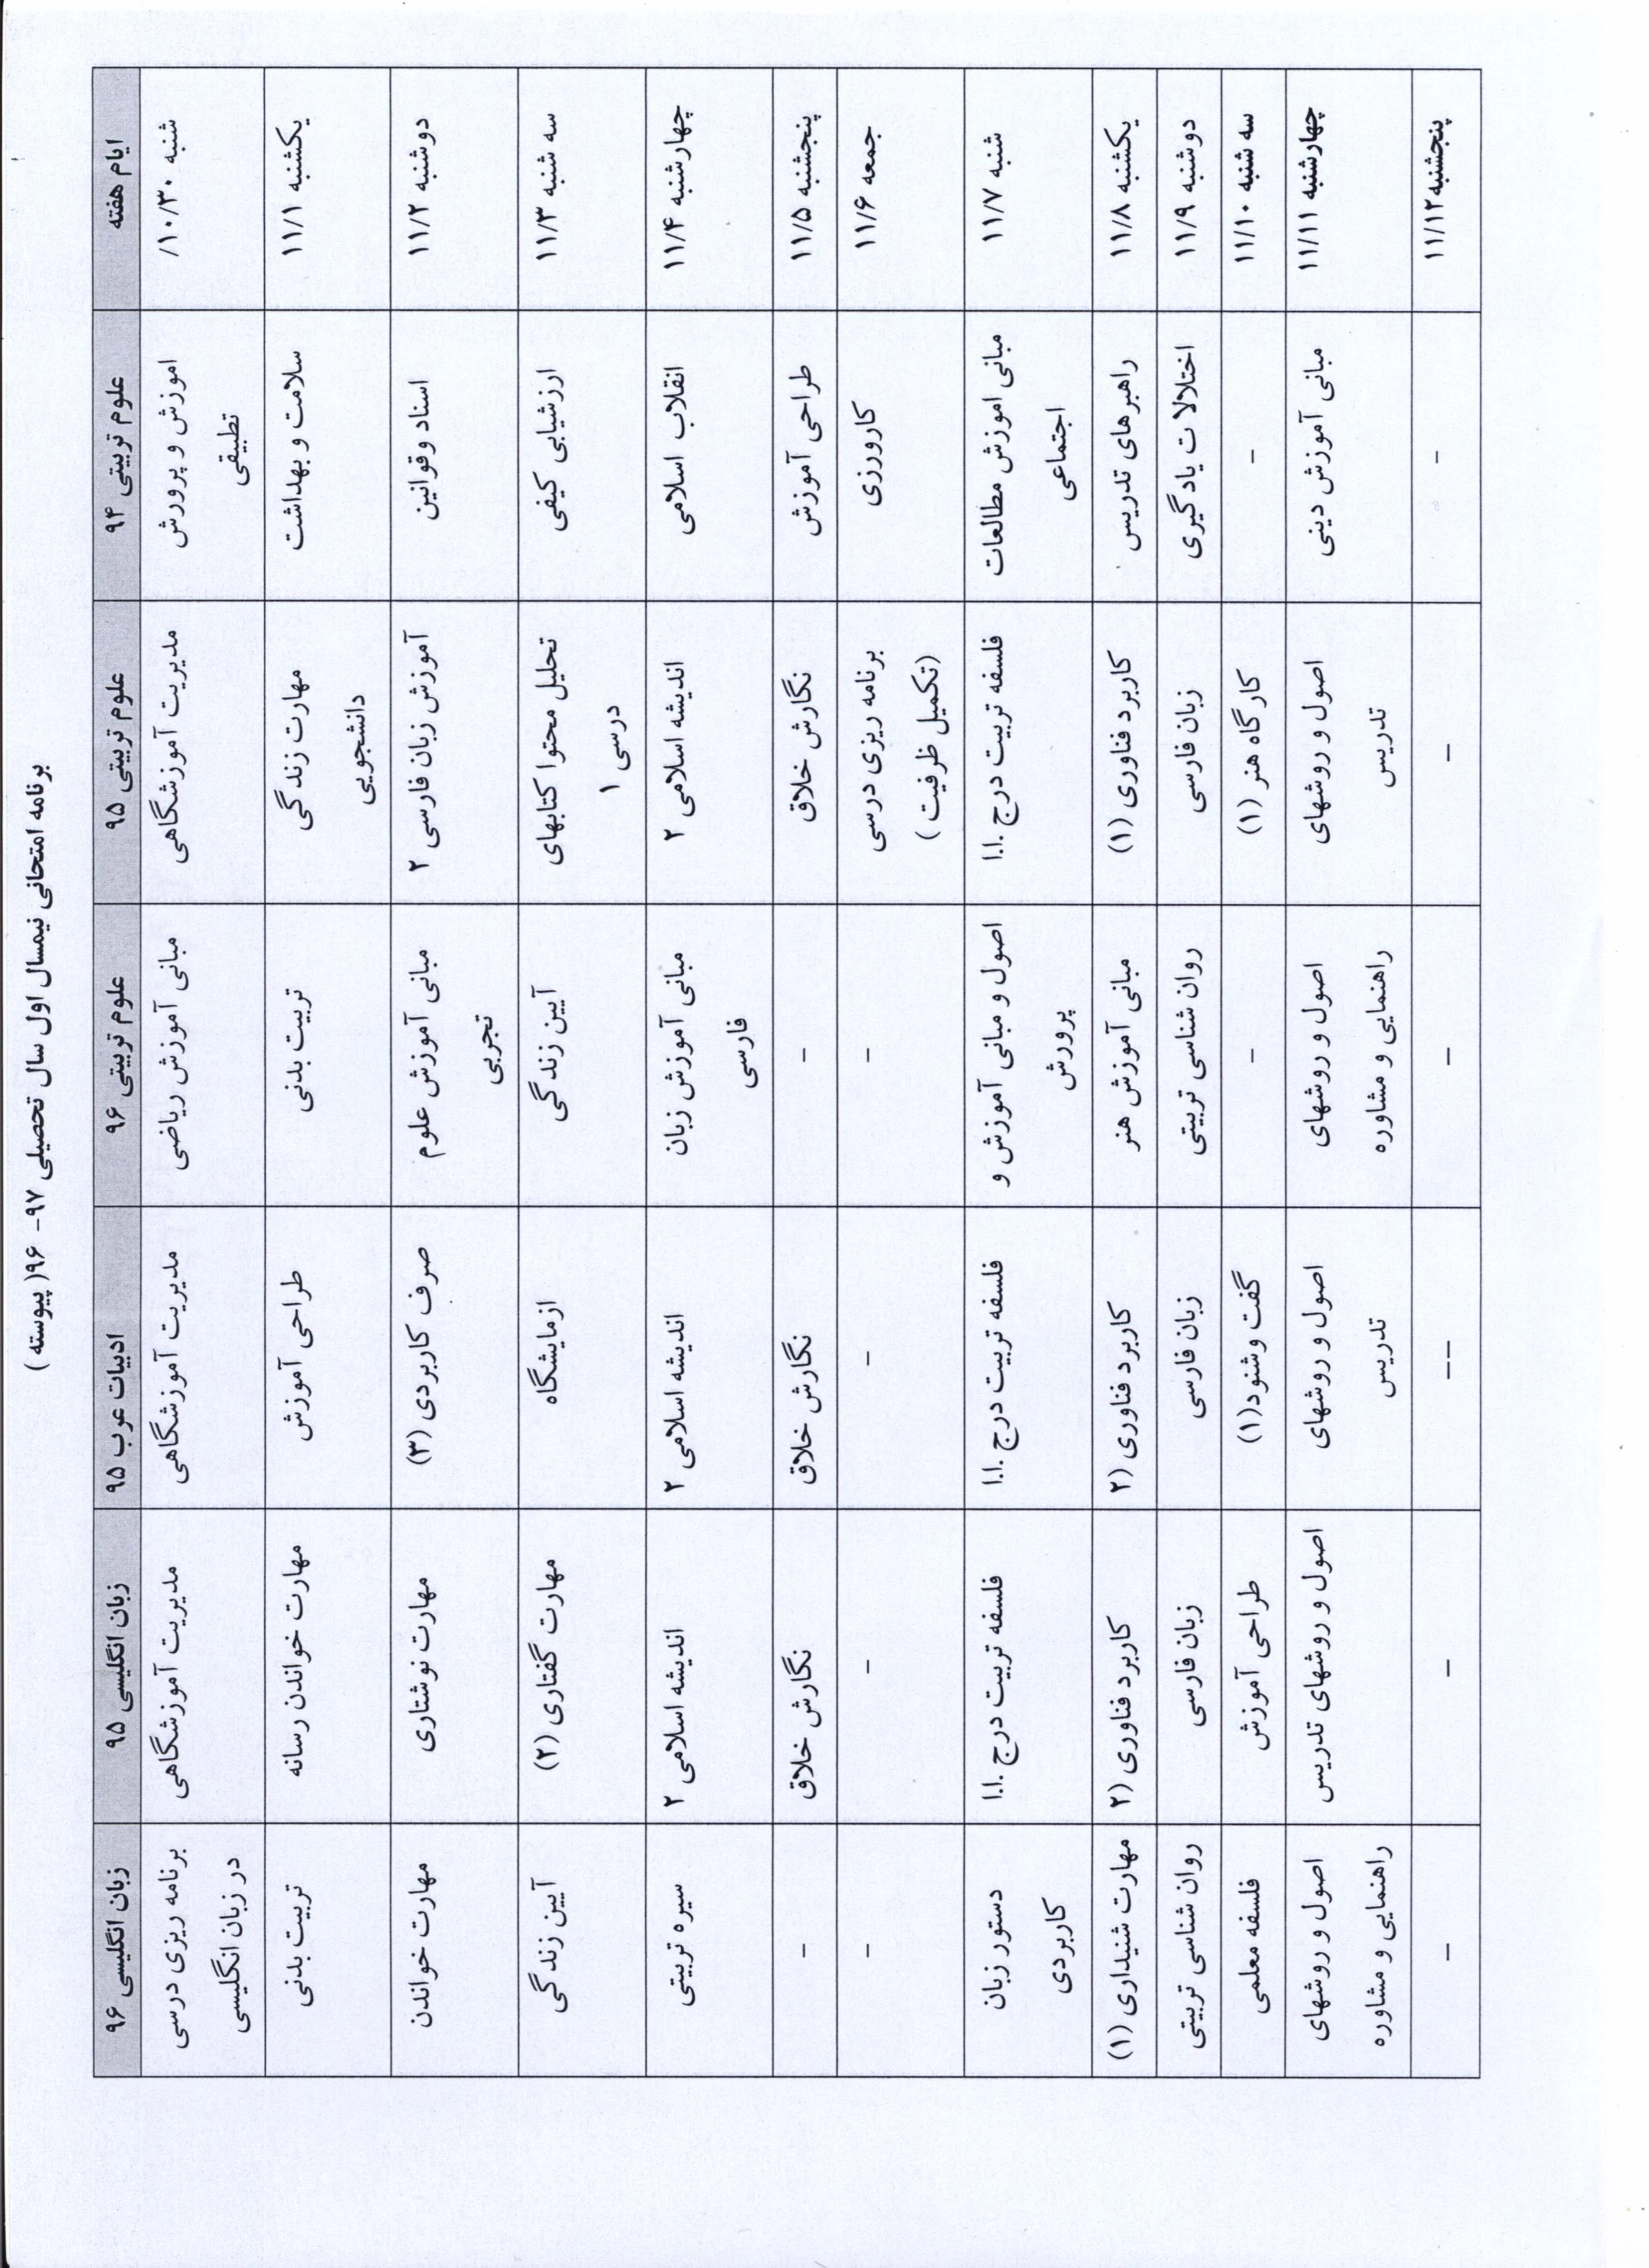 برنامه امتحانی نیمسال اول سال تحصیلی ۹۷- ۹۶( پیوسته )
ایام هفته	علوم تربیتی ۹۴	علوم تربیتی ۹۵	علوم تربیتی ۹۶	ادبیات عرب ۹۵	زبان انگلیسی ۹۵	زبان انگلیسی ۹۶
شنبه ۱۰/۳۰/	اموزش و پرورش تطبیقی	مدیریت آموزشگاهی	مبانی آموزش ریاضی	مدیریت آموزشگاهی	مدیریت آموزشگاهی	برنامه ریزی درسی در زبان انگلیسی
یکشنبه ۱۱/۱	سلامت و بهداشت	مهارت زندگی دانشجویی	تربیت بدنی	طراحی آموزش	مهارت خواندن رسانه	تربیت بدنی
دوشنبه ۱۱/۲	اسناد وقوانین	آموزش زبان فارسی ۲	مبانی آموزش علوم تجربی	صرف کاربردی (۳)	مهارت نوشتاری	مهارت خواندن
سه شنبه ۱۱/۳	ارزشیابی کیفی	تحلیل محتوا کتابهای درسی ۱	آیین زندگی	ازمایشگاه	مهارت گفتاری (۲)	آیین زندگی
چهارشنبه ۱۱/۴	انقلاب اسلامی	اندیشه اسلامی ۲	مبانی آموزش زبان فارسی	اندیشه اسلامی ۲	اندیشه اسلامی ۲	سیره تربیتی
پنجشنبه ۱۱/۵	طراحی آموزش	نگارش خلاق	-	نگارش خلاق	نگارش خلاق	-
جمعه ۱۱/۶	کارورزی	برنامه ریزی درسی (تکمیل ظرفیت )	-	-	-	-
شنبه ۱۱/۷	مبانی اموزش مطالعات اجتماعی	فلسفه تربیت درج .ا.ا	اصول و مبانی آموزش و پرورش	فلسفه تربیت درج .ا.ا	فلسفه تربیت درج .ا.ا	دستور زبان کاربردی
یکشنبه ۱۱/۸	راهبرهای تدریس	کاربرد فناوری (۱)	مبانی آموزش هنر	کاربرد فناوری (۲	کاربرد فناوری (۲	مهارت شنیداری (۱)
دوشنبه ۱۱/۹	اختلالات یادگیری	زبان فارسی	روان شناسی تربیتی	زبان فارسی	زبان فارسی	روان شناسی تربیتی
سه شنبه ۱۱/۱۰	-	کارگاه هنر (۱)	-	گفت وشنود(۱)	طراحی آموزش	فلسفه معلمی
چهارشنبه ۱۱/۱۱	مبانی آموزش دینی	اصول و روشهای تدریس	اصول و روشهای راهنمایی و مشاوره	اصول و روشهای تدریس	اصول و روشهای تدریس	اصول و روشهای راهنمایی و مشاوره
پنجشنبه۱۱/۱۲	-	-	-	--	-	-